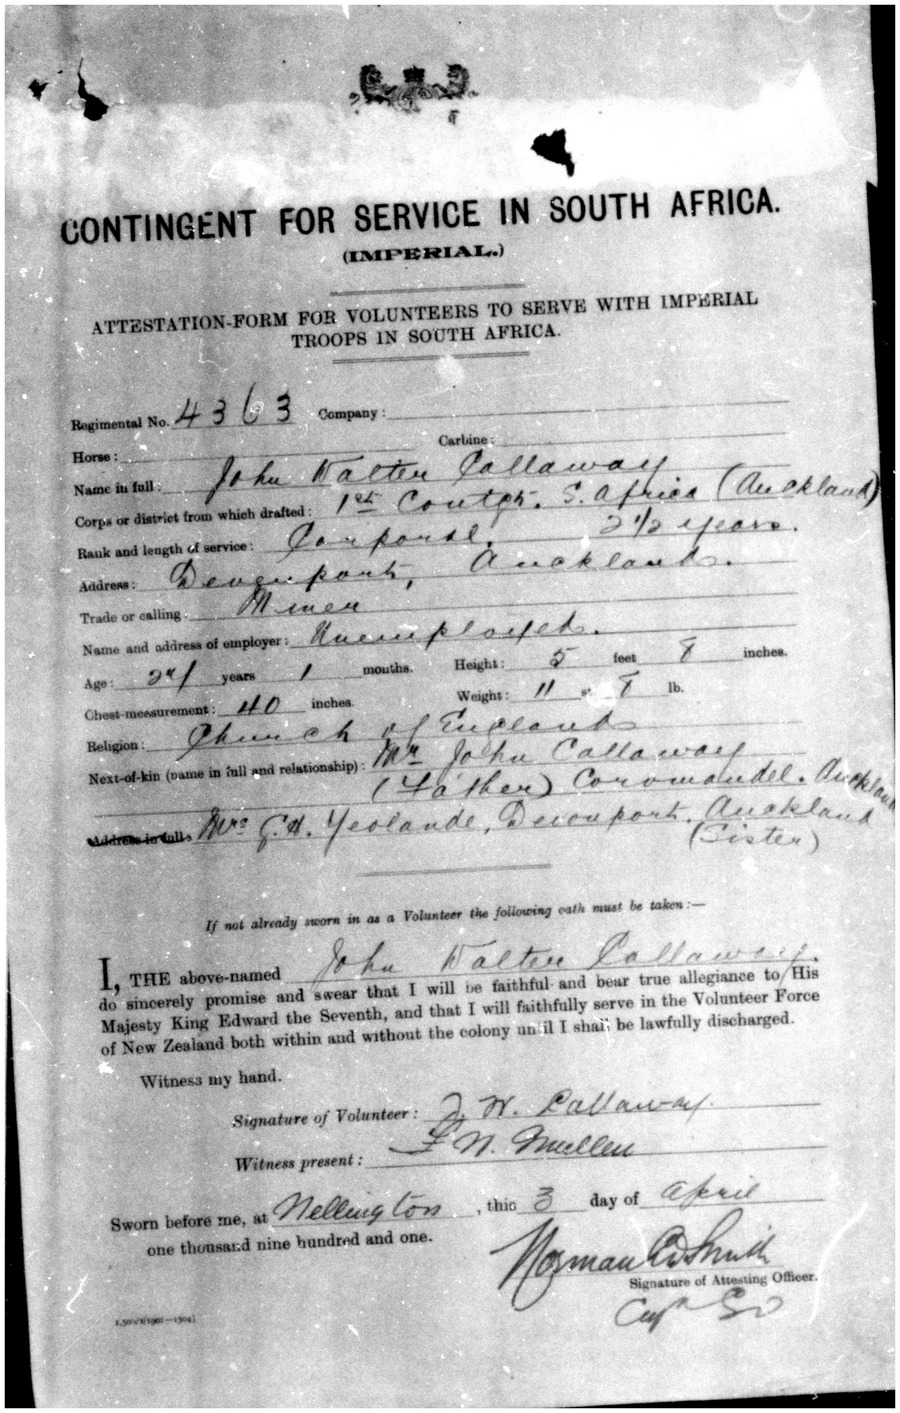 CONTINGENT FOR SERVICE IN SOUTH AFRICA.
(IMPERIAL.)
ATTESTATION-FORM FOR VOLUNTEERS TO SERVE WITH IMPERIAL
TROOPS IN SOUTH AFRICA.
Regimental No. 4363 Company:
Horse: Carbine:
Name in full: John Walter Callaway
Corps or district from which drafted: 1st Contgt. S. Africa (Auckland)
Rank and length of service: Corporal. 2 1/2 years.
Address: Devonport, Auckland.
Trade or calling: Miner
Name and address of employer: Unemployed.
Age: years 1 months. Height: 5 feet 8 inches.
Chest-measurement: 40 inches. Weight: 11 st. 8 lb.
Religion: Church of England
Next-of-kin (name in full and relationship): Mr John Callaway
(Father) Coromandel. Auckland
Address in full: Mrs G.H. Yeolande, Devonport. Auckland
(Sister)
If not already sworn in as a Volunteer the following oath must be taken:—
I, THE above-named John Walter Callaway.
do sincerely promise and swear that I will be faithful and bear true allegiance to His
Majesty King Edward the Seventh, and that I will faithfully serve in the Volunteer Force
of New Zealand both within and without the colony until I shall be lawfully discharged.
Witness my hand.
Signature of Volunteer: J. W. Callaway.
Witness present: F N. Mullen
Sworn before me, at Wellington, this 3 day of April
one thousand nine hundred and one.
Norman Smith
Signature of Attesting Officer.
Capt